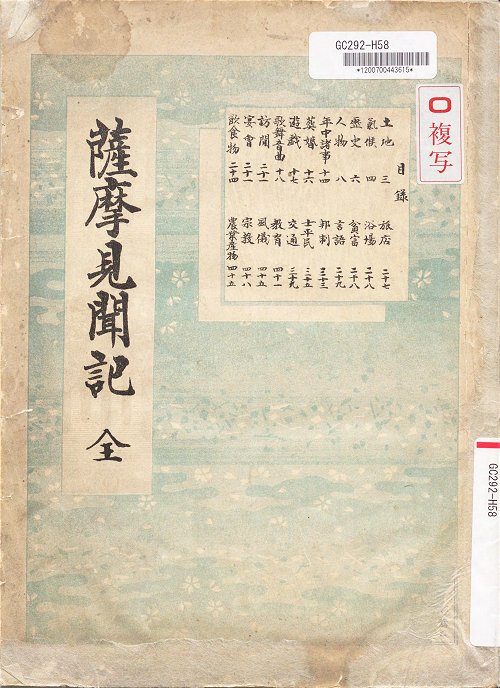 GC292-H58
*1200700443615*
複写
目録
土地 三
氣候 四
歴史 六
人物 八
年中諸事 十四
葬婚 十六
遊戯 十七
歌舞音曲 十八
訪問 二十一
宴會 二十一
飲食物 二十四
旅店 二十七
浴場 二十八
貧富 二十八
言語 二十九
邦制 三十三
士平民 三十五
交通 三十九
教育 四十一
風儀 四十五
宗教 四十八
農業産物 四十五
薩摩見聞記 全
GC292-H58